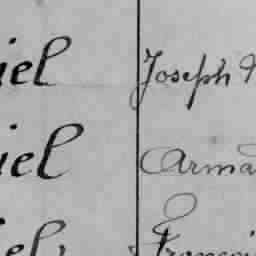 iel Joseph
iel Arma
iel Françoi